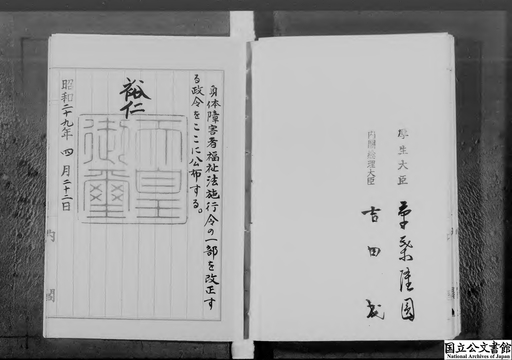 身体障害者福祉法施行令の一部を改正す
る政令をここに公布する。
裕仁
天皇
御璽
昭和二十九年 四月二十二日
内閣
厚生大臣 草葉隆圓
内閣総理大臣
吉田茂
国立公文書館
National Archives of Japan